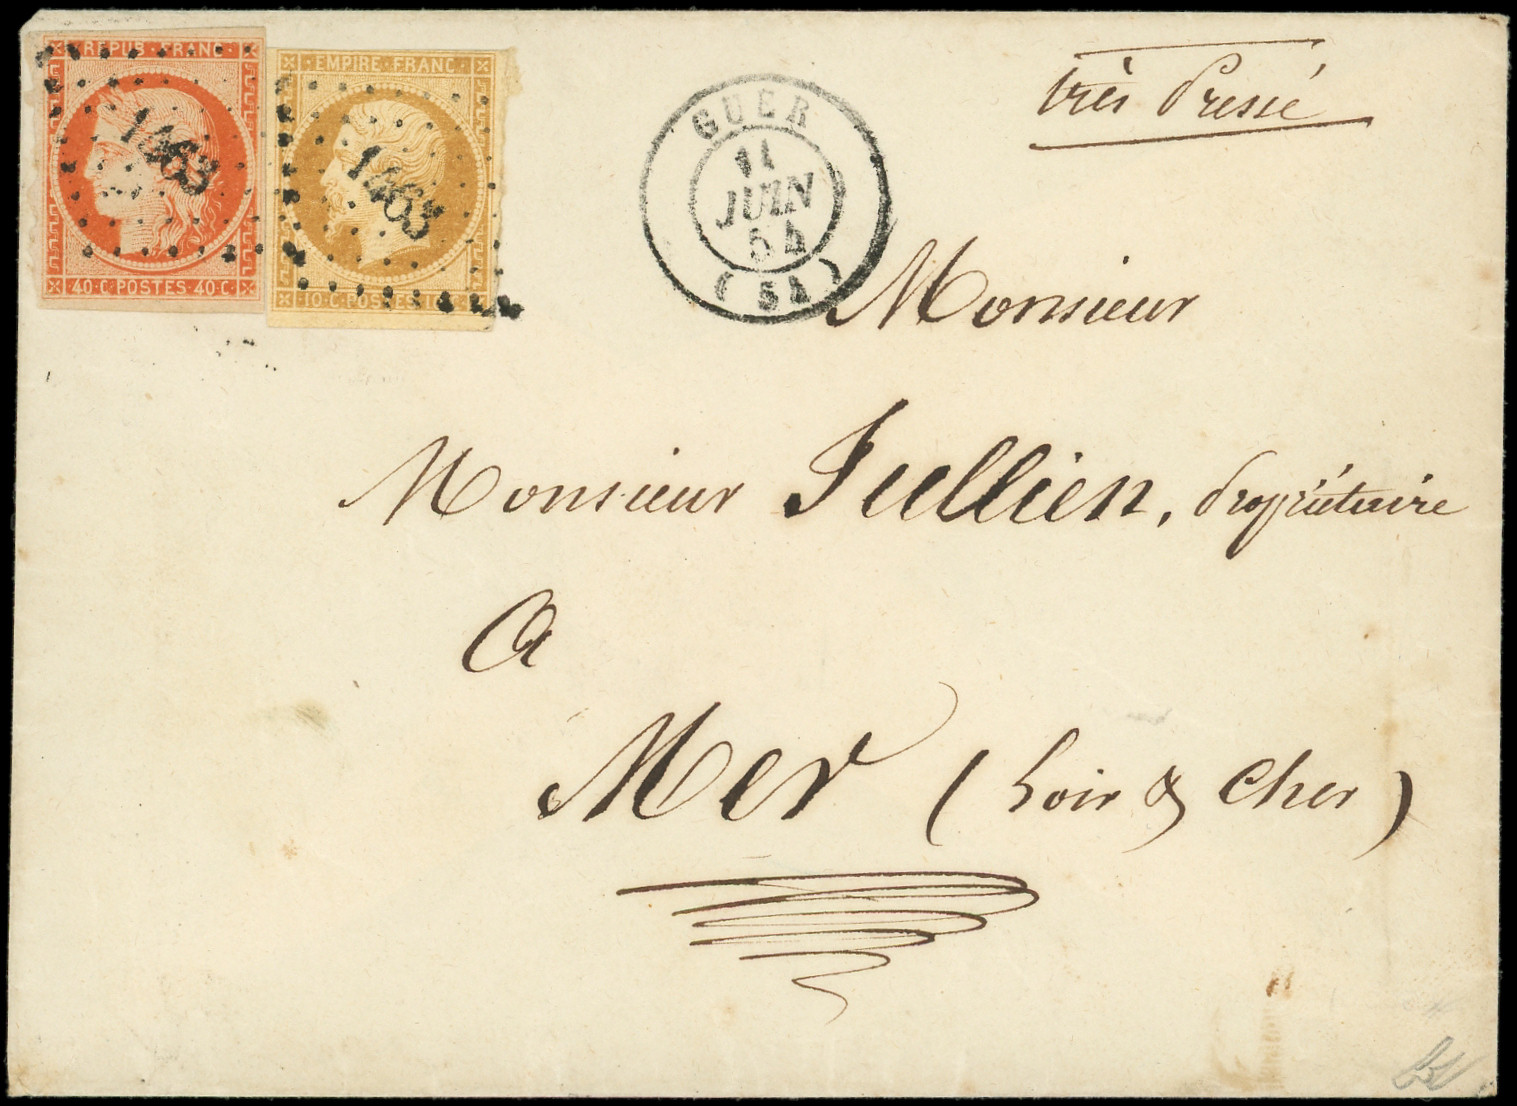 REPUB·FRANC·
1463
40·C·POSTES·40·C·
·EMPIRE·FRANC·
1463
10·C·POSTES·10·C·
GUER
11
JUIN
54
(54)
très Pressé
Monsieur
Monsieur Jullien, Propriétaire
A
Mer (Loir & Cher)